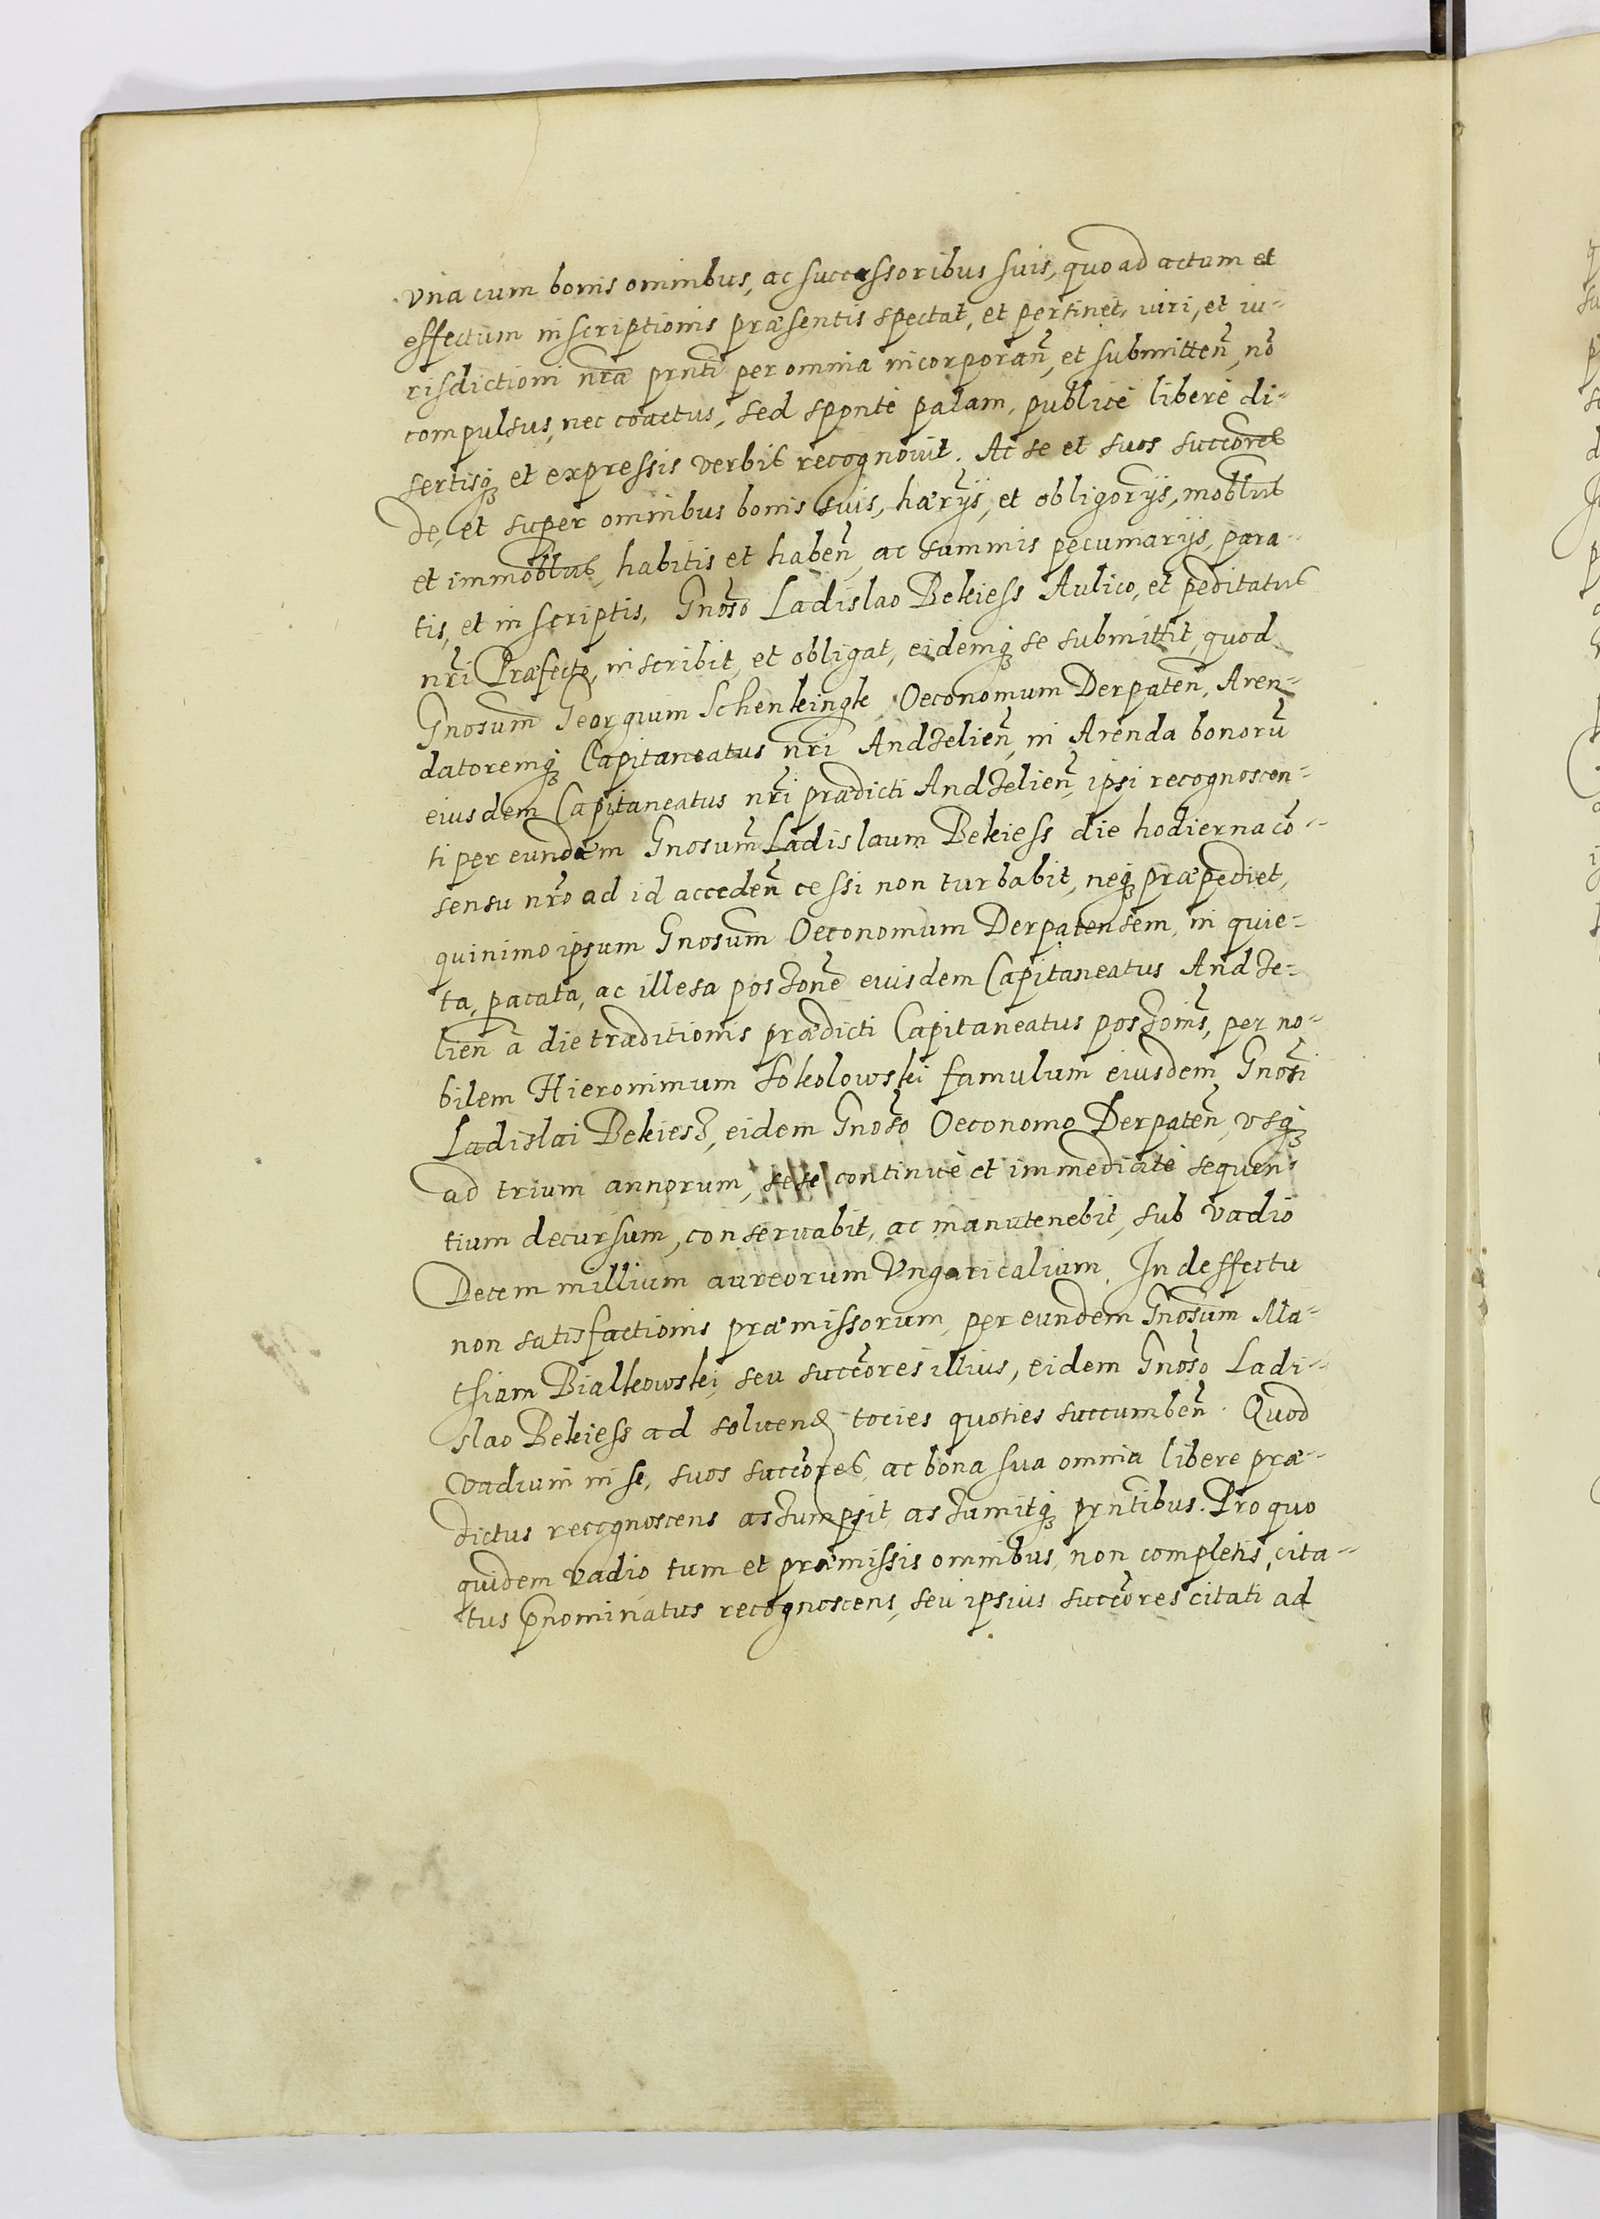 vna cum bonis omnibus, ac successoribus suis, quoad actum et
effectum inscriptionis præsentis spectat, et pertinet, iuri, et iu-
risdictioni nr̃a prnti per omnia incorporañ, et submitteñ, nõ
compulsus, nec coactus, sed spõnte palam, publice libere di-
sertisq3 et expressis verbis recognovit. Ac se et suos succõres
de, et super omnibus bonis suis, hærỹs, et obligorỹs, moblibus
et immoblibus, habitis et habeñ, ac summis pecuniarijs, para-
tis, et inscriptis, Gnõso Ladislao Bekiess Aulico, et peditatus
nr̃i Præfecto, inscribit, et obligat, eidemq3 se submittit, quod
Gnosum Georgium Schenkingk, Oeconomum Derpateñ, Aren-
datoremq3 Capitaneatus nr̃i Andzelieñ, in Arenda bonorũ
eiusdem Capitaneatus nr̃i prædicti Andzelieñ, ipsi recognoscen-
ti per eundem Gnosum̃ Ladislaum Bekiess die hodierna cõ-
sensu nr̃o ad id accedeñ cessi non turbabit, neq3 præpediet,
quinimo ipsum Gnosum̃ Oeconomum Derpatensem, in quie-
ta, pacata, ac illesa poszone eiusdem Capitaneatus Andze-
lieñ à die traditionis prædicti Capitaneatus poszonis, per no-
bilem Hieronimum Sokolowski famulum eiusdem Gnõsi
Ladislai Bekiesz, eidem Gnõso Oeconomo Derpateñ, vsq3
ad trium annorum, sese continue et immediate sequen-
tium decursum, conservabit, ac manutenebit, sub vadio
Decem millium aureorum Vngaricalium. In deffectu
non satisfactionis præmissorum, per eundem Gnosum̃ Ma-
thiam Bialkowski, seu succõres illius, eidem Gnõso Ladi-
slao Bekiess ad solvend tocies quoties succumbeñ. Quod
vadium in se, suos succõres, ac bona sua omnia libere præ-
dictus recognoscens aszumpsit, aszumitq3 prntibus. Pro quo
quidem vadio tum et præmissis omnibus, non completis, cita-
tus p̃nominatus recognoscens, seu ipsius succõres citati, ad